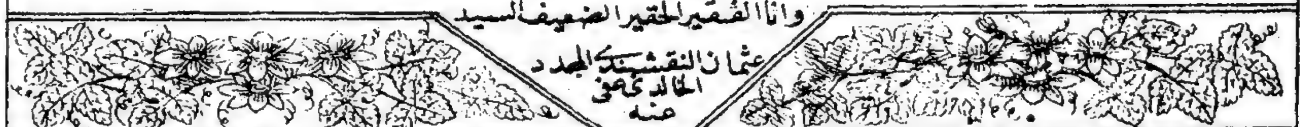 وانا الفقير الحقير الضعيف السيد
عثمان النقشبندى المجدد
الخالدى عفى
عنه